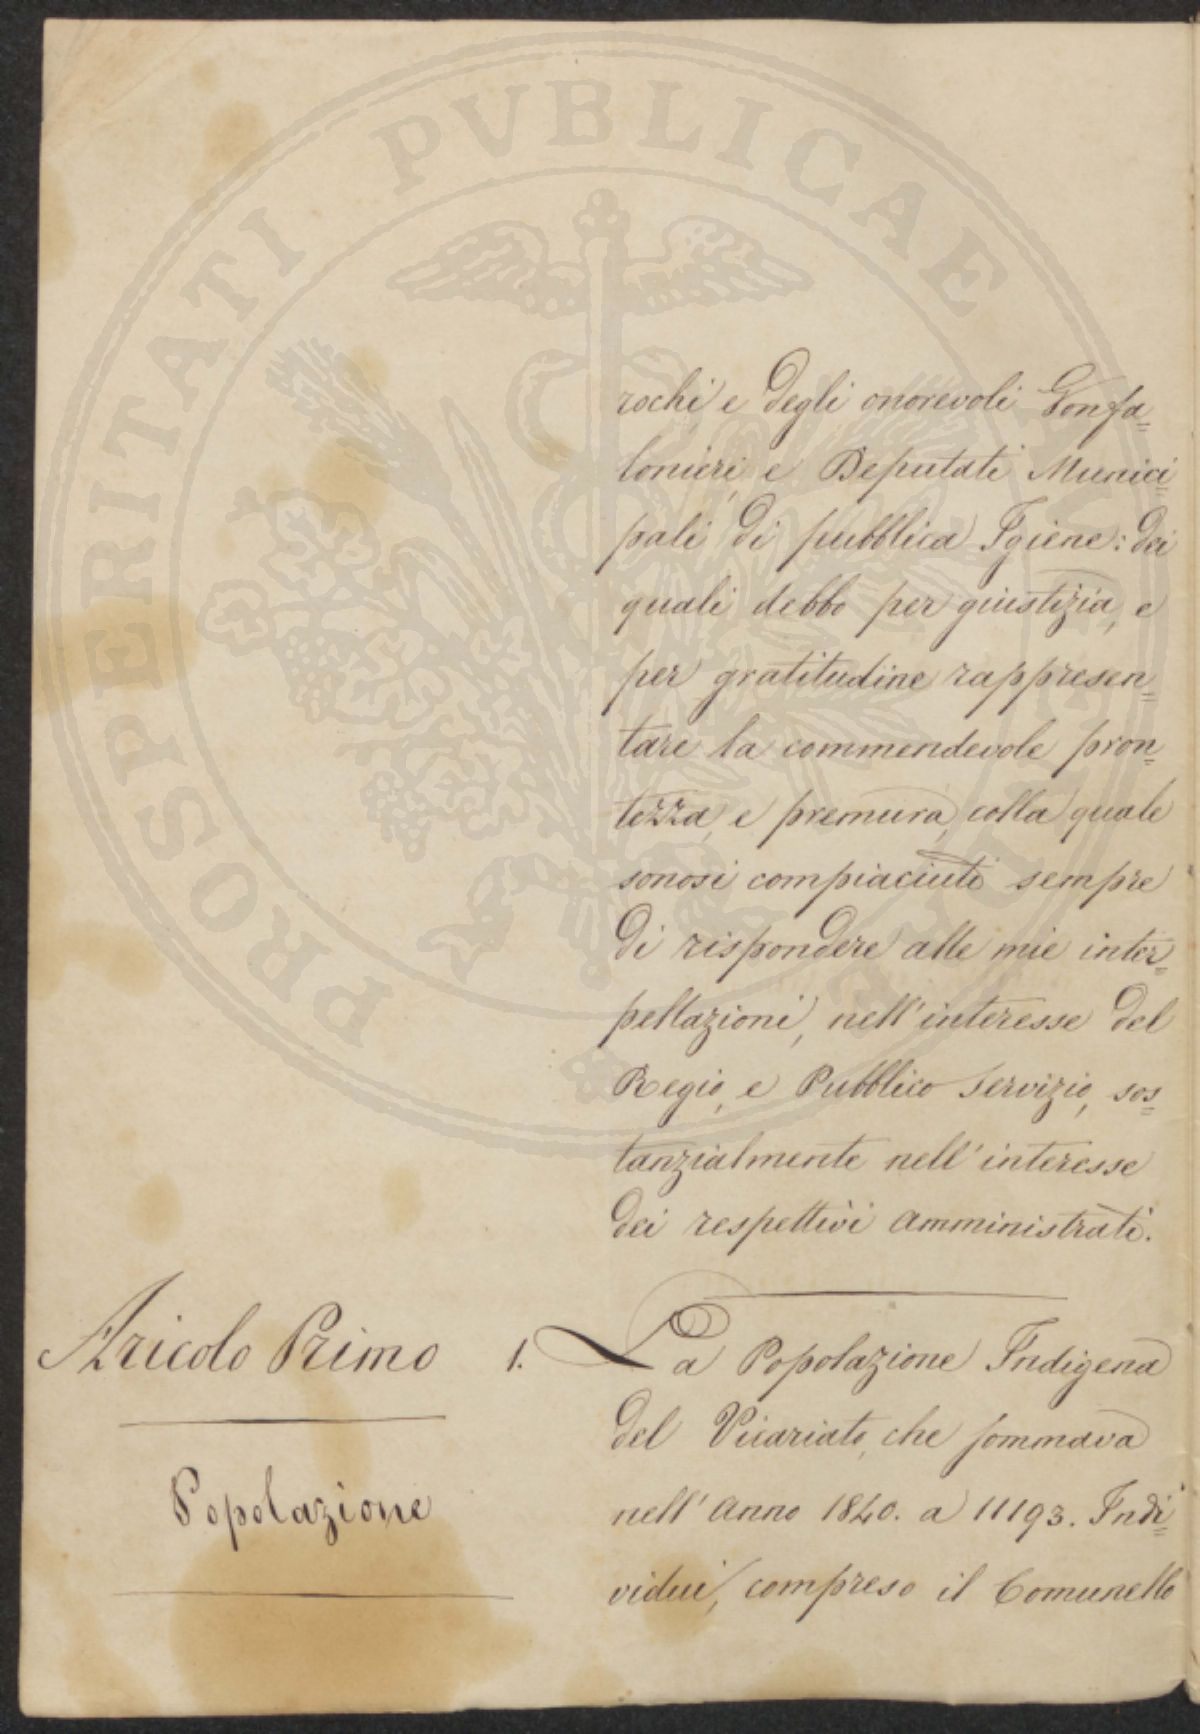 PROSPERITATI PUBLICAE
rochi, e degli onorevoli Gonfa=
lonieri, e Deputati Munici=
pali di pubblica Igiene: dei
quali debbo per giustizia, e
per gratitudine rappresen=
tare la commendevole pron=
tezza, e premura, colla quale
sonosi compiaciuti sempre
di rispondere alle mie inter=
pellazioni, nell'interesse del
Regio, e Pubblico servizio, sos=
tanzialmente nell'interesse
dei respettivi amministrati.
Aricolo Primo
Popolazione
1. La Popolazione Indigena
del Vicariato, che sommava
nell'anno 1840. a 11193. Indi=
vidui, compreso il Comunello